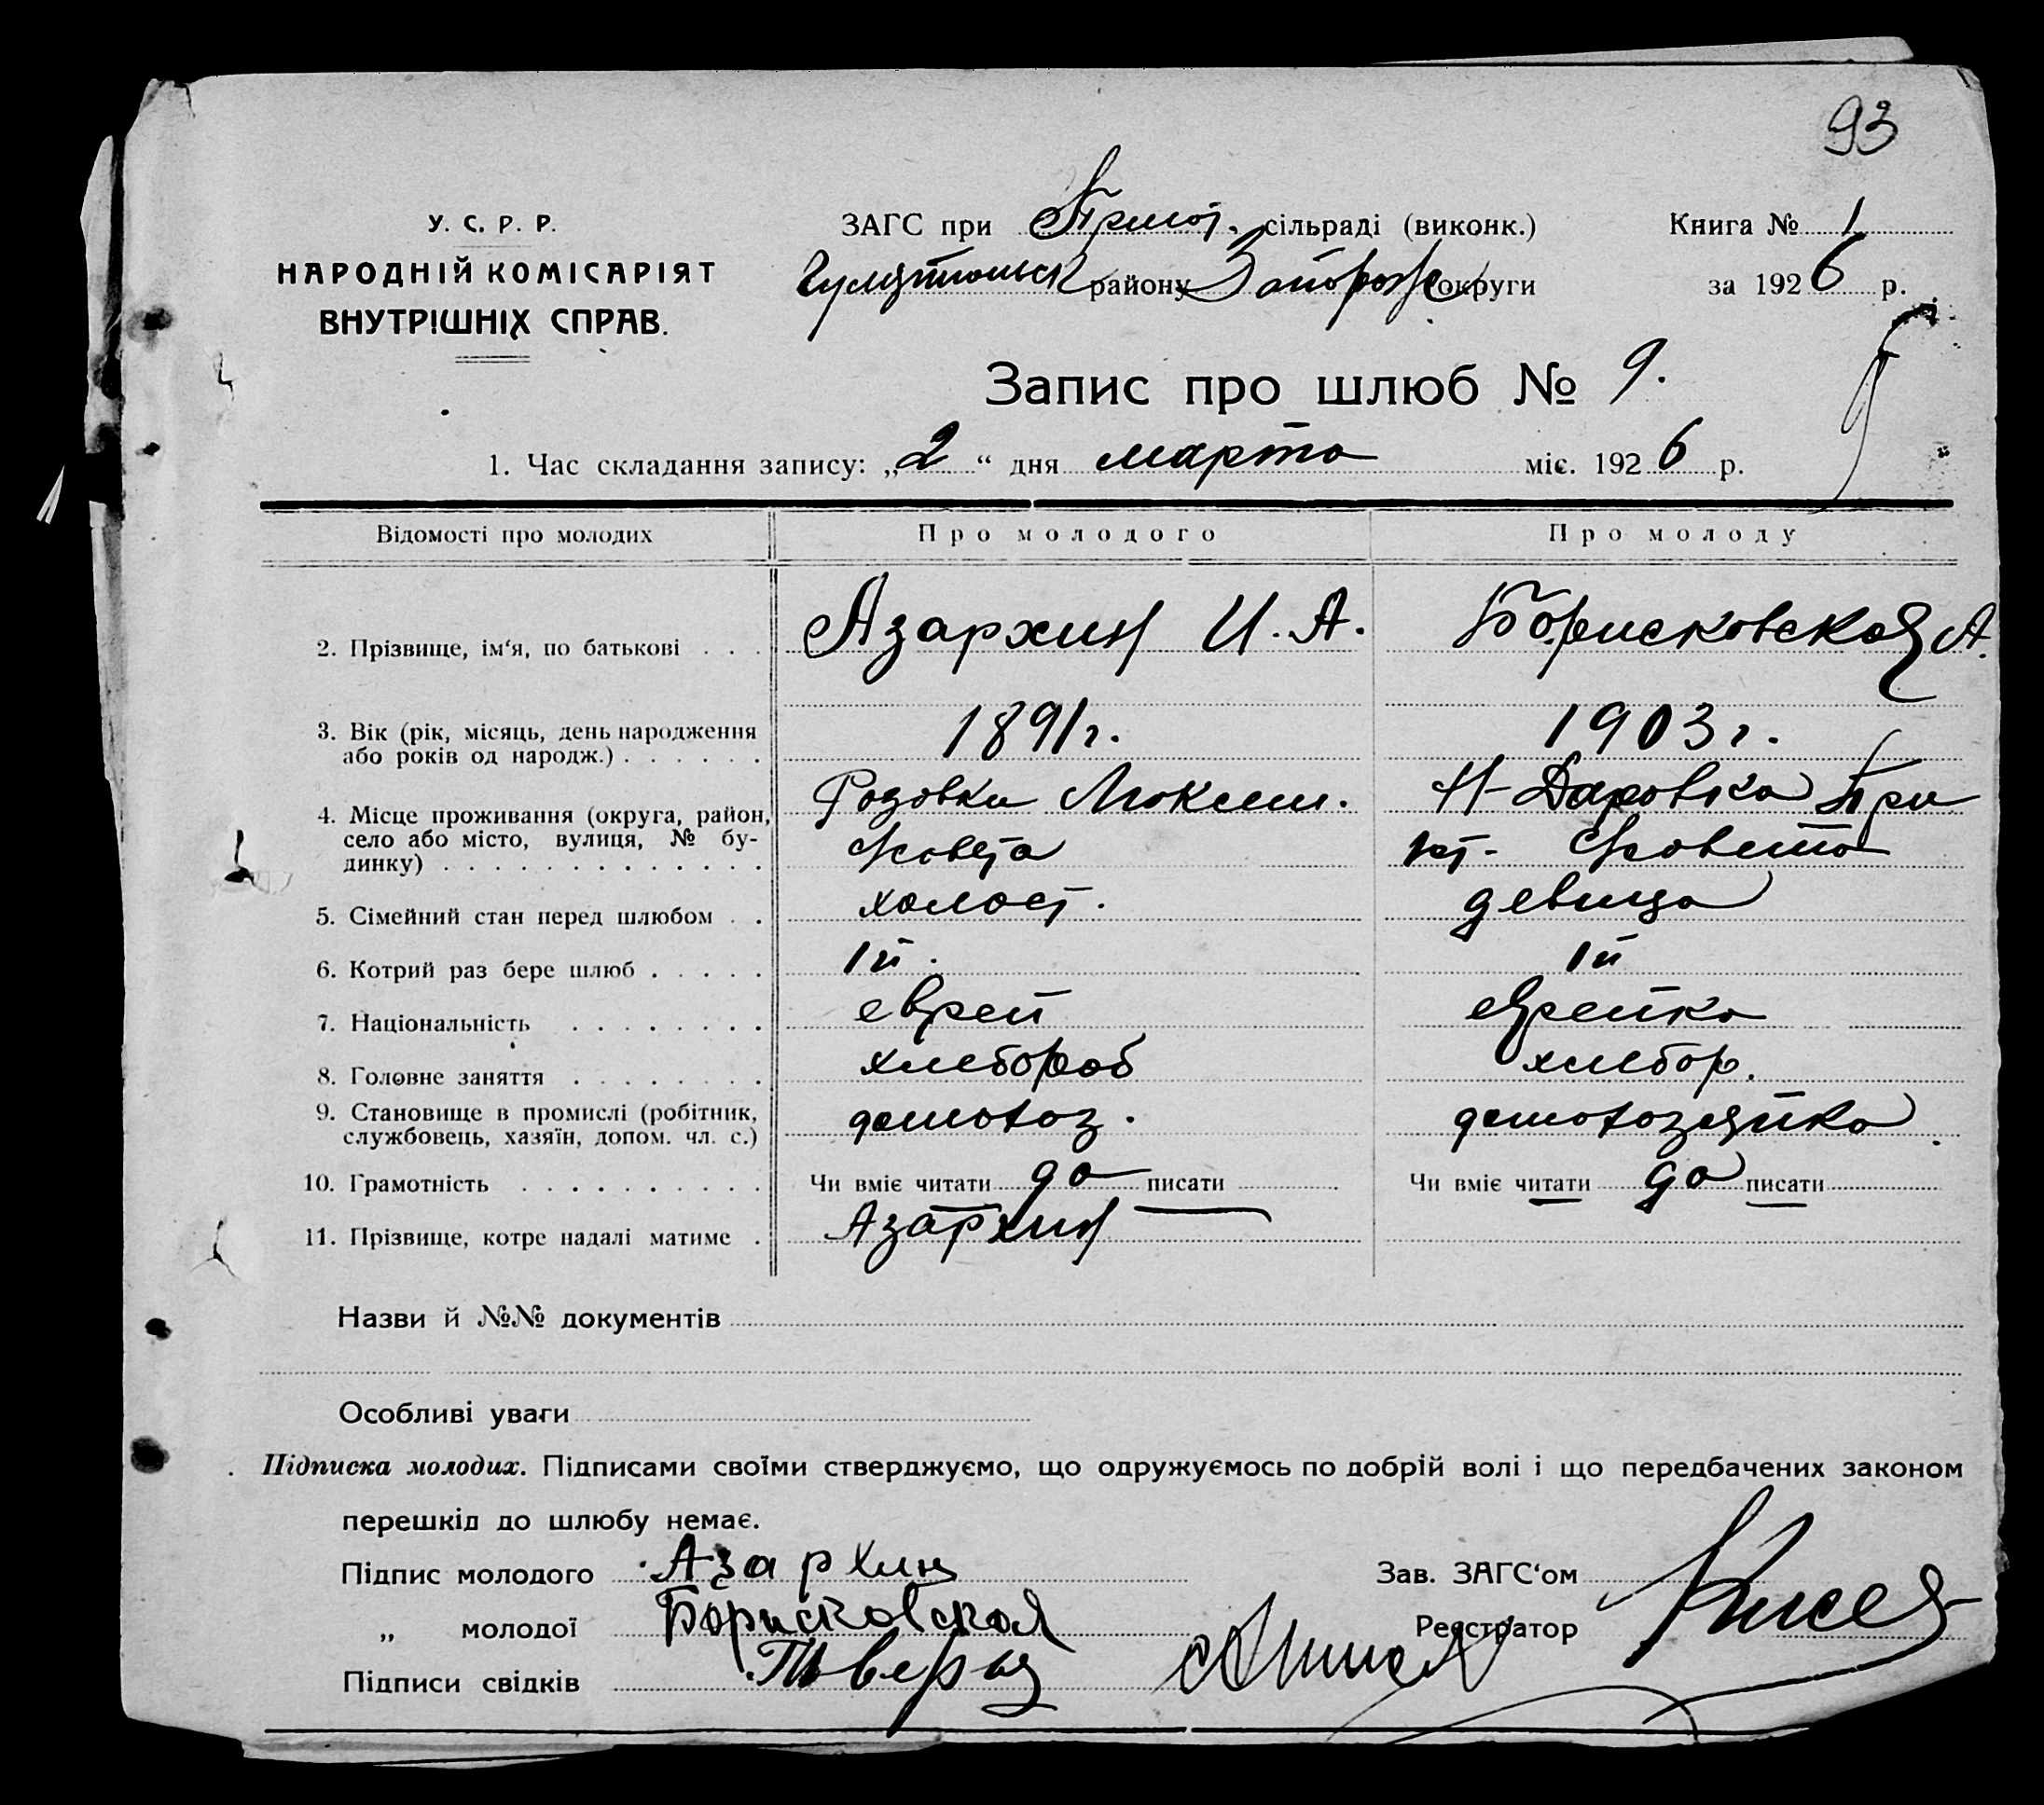 93
У. С. Р. Р.
НАРОДНІЙ КОМІСАРІЯТ
ВНУТРІШНІХ СПРАВ.
ЗАГС при сільраді (виконк.)
району Запорож округи
Книга № 1
за 1926 р.
Запис про шлюб № 9.
1. Час складання запису: „2“ дня марта міс. 1926 р.
Відомості про молодих
Про молодого
Про молоду
2. Прізвище, ім‘я, по батькові . . .
Азархин И. А.
Борисковская А.
3. Вік (рік, місяць, день народження
або років од народж.) . . . . . .
1891 г.
1903 г.
4. Місце проживання (округа, район,
село або місто, вулиця, № бу-
динку) . . . . . . . . . . . . .
Розовки
Совета
Н-Даровка При
ют. Совета
5. Сімейний стан перед шлюбом . .
холост.
девица
6. Котрий раз бере шлюб . . . . .
1й.
1й
7. Національність . . . . . . . .
еврей
еврейка
8. Головне заняття . . . . . . . .
хлебороб
хлебор.
9. Становище в промислі (робітник,
службовець, хазяїн, допом. чл. с.)
домохоз.
домохозяйка
10. Грамотність . . . . . . . . . .
Чи вміє читати да писати
Чи вміє читати да писати
11. Прізвище, котре надалі матиме .
Азархин
Назви й №№ документів
Особливі уваги
Підписка молодих. Підписами своїми стверджуємо, що одружуємось по добрій волі і що передбачених законом
перешкід до шлюбу немає.
Підпис молодого Азархин
„ молодої Борисковская
Підписи свідків
Зав. ЗАГС‘ом
Реєстратор